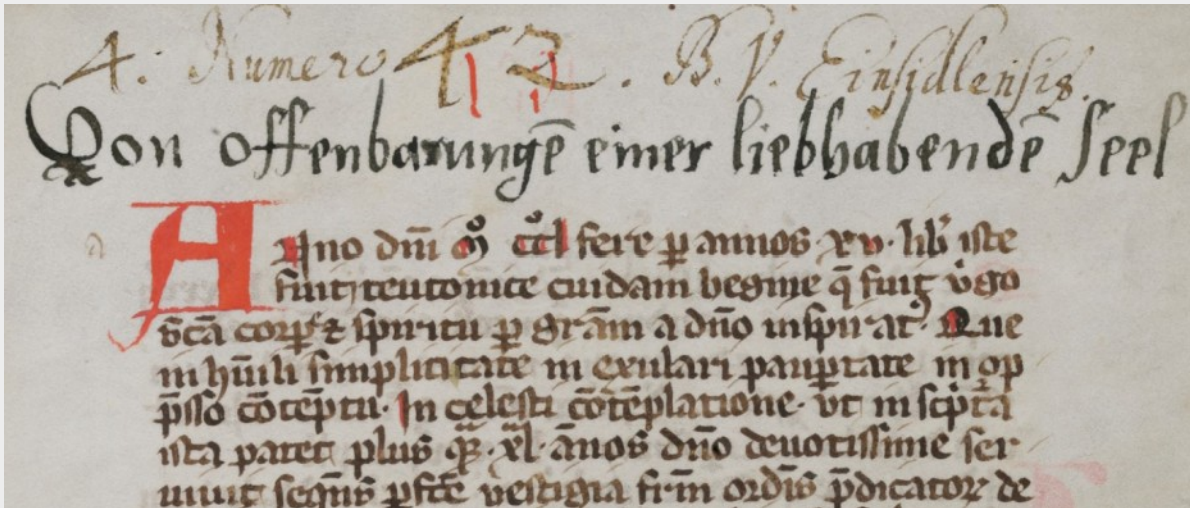 4. Numero 42. B. V. Einsidlensis.
Von offenbarungē einer liebhabendē Seel
Anno dn̄i mͦ ccͦl fere ꝑ annos xv. lib̄ iste
fuit teutonice cuidam begine q̄ fuit v̓go
sc̄a corpe ⁊ spiritu ꝑ grām a dn̄o inspirat᷒. Que
in hūili simplicitate in exulari pauꝑtate in op
p̄sso cōtēptu. In celesti cōtēplatione. vt in sc̓pt̄a
ista patet plus qᷓ xl. ānos dn̄o deuotissime ser
uiuit seqn̄s ꝑfc̄e vestigia frm̄ ordīs p̄dicatoꝝ de